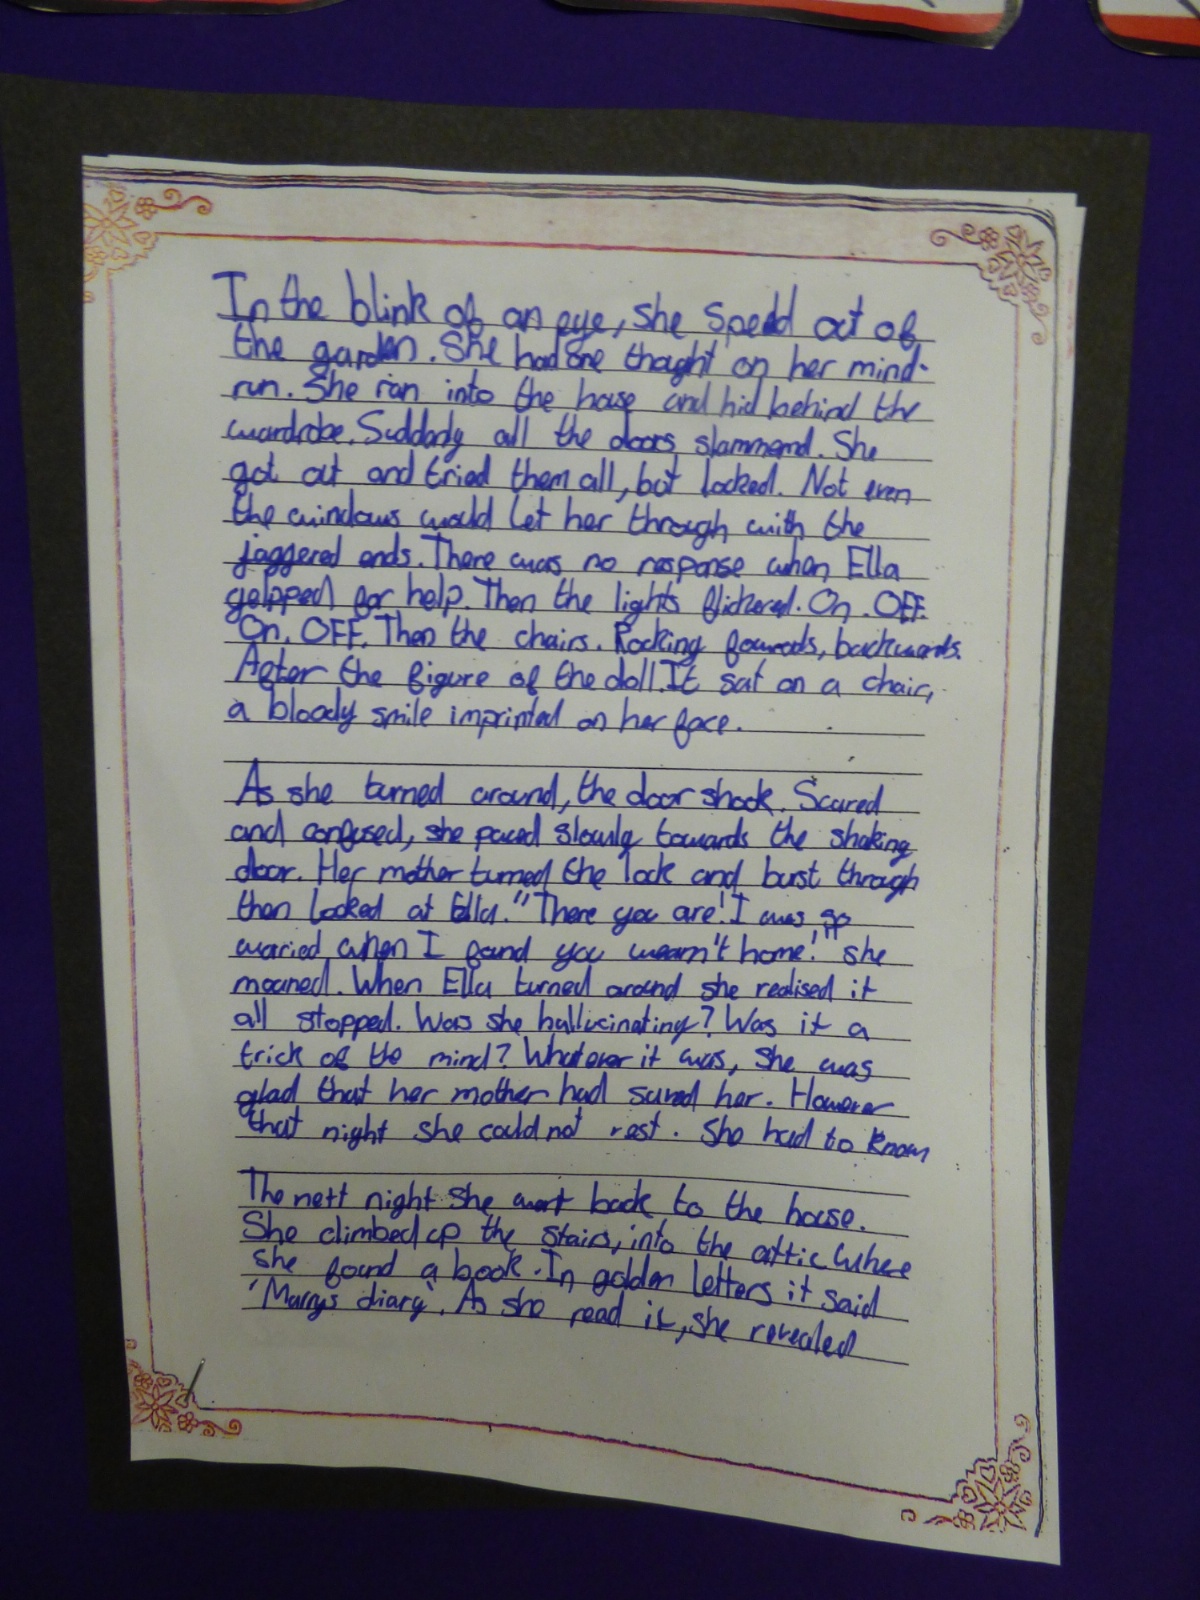 In the blink of an eye, she spedd out of
the garden. She had one thought on her mind-
run. She ran into the house and hid behind the
wardrobe. Suddenly all the doors slammend. She
got out and tried them all, but locked. Not even
the windows would let her through with the
jaggered ends. There was no response when Ella
yelpped for help. Then the lights flickered. On. OFF.
On. OFF. Then the chairs. Rocking fowards, backwards.
After the figure of the doll. It sat on a chair,
a bloody smile imprinted on her face.
As she turned around, the door shook. Scared
and confused, she paced slowly towards the shaking
door. Her mother turned the lock and burst through
then looked at Ella. "There you are! I was so
woried when I found you wearn't home!" she
moaned. When Ella turned around she realised it
all stopped. Was she hallucinating? Was it a
trick of the mind? Whatever it was, she was
glad that her mother had saved her. However
that night she could not rest. She had to know
The nett night she went back to the house.
She climbed up the stairs, into the attic where
she found a book. In golden letters it said
'Marrys diary'. As she read it, she revealed